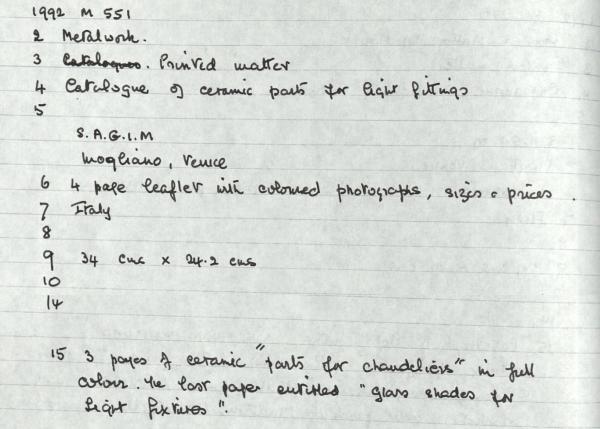 1992 M 551
2 Metalwork.
3 Catalogues. Printed matter
4 Catalogue of ceramic parts for light fittings
5
S.A.G.I.M
Mogliano, Venice
6 4 page leaflet with coloured photographs, sizes & prices.
7 Italy
8
9 34 cms x 24.2 cms
10
14
15 3 pages of ceramic "parts for chandeliers" in full
colour. The last page entitled "Glass shades for
light fixtures".